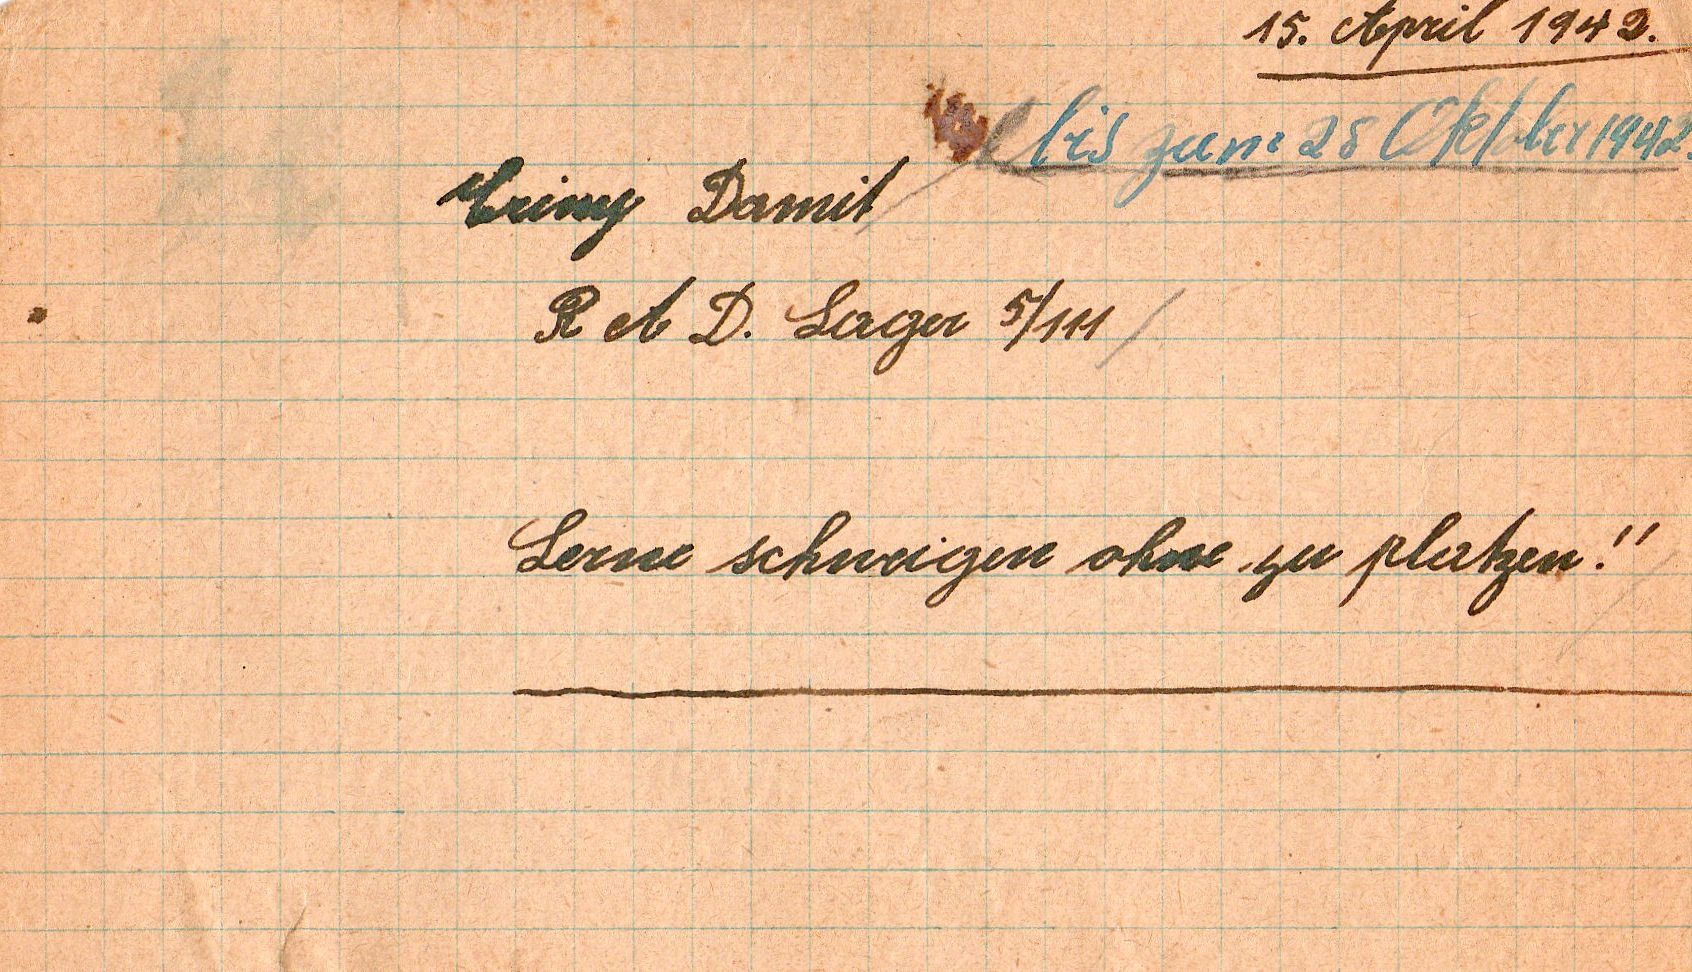 15. April 1942.
bis zum 28 Oktober 1942.
Damit
R A D. Lager 5/111
Lerne schweigen ohne zu platzen!!